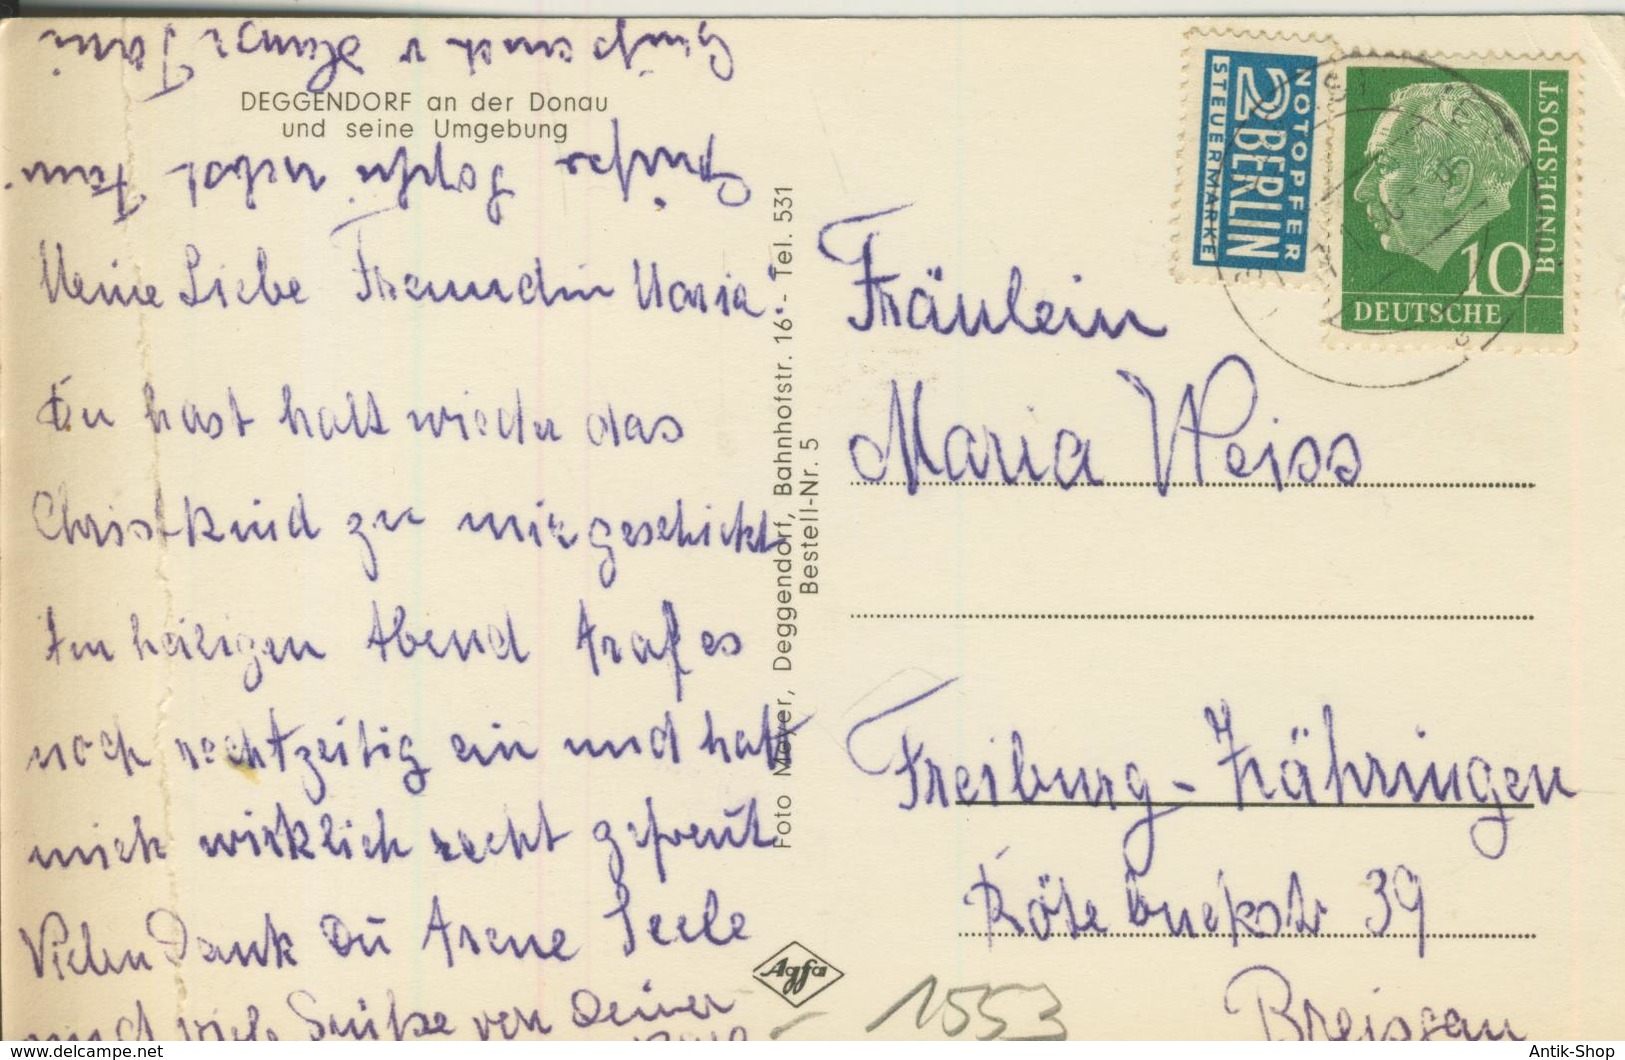 DEGGENDORF an der Donau
und seine Umgebung
Meine Liebe Freundin Maria.
Du hast halt wieder das
Christkind zu mir geschickt
Am heiligen Abend traf es
noch rechtzeitig ein und hatt
mich wirklich recht gefreut
Vielen Dank Du Arme Seele
und viele Grüße von Deiner
Foto Meyer, Deggendorf, Bahnhofstr. 16 - Tel. 531
Bestell-Nr. 5
Agfa
NOTOPFER
2 BERLIN
STEUERMARKE
DEUTSCHE
BUNDESPOST
10
Fräulein
Maria Weiss
Freiburg-Zähringen
Rötebuckstr 39
Breisgau
1553
Antik-Shop